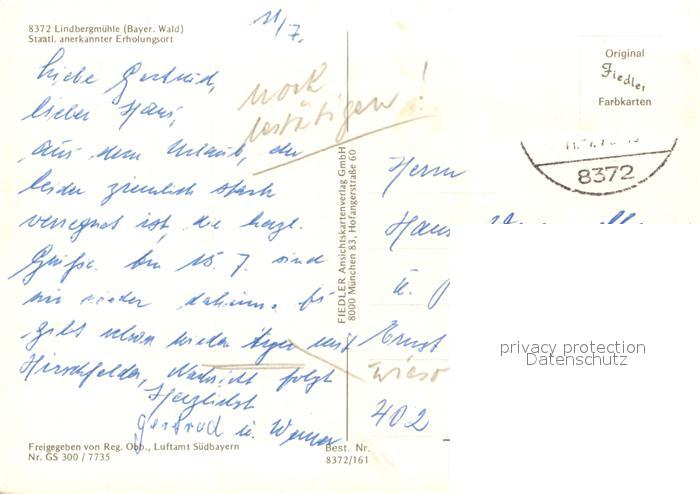 8372 Lindbergmühle (Bayer. Wald)
Staatl. anerkannter Erholungsort
11/7.
Liebe Gertrud,
lieber Hans,
aus dem Urlaub, der
leider ziemlich stark
verregnet ist, die herzl.
Grüße. Am 15. 7. sind
wir wieder daheim. Es
gibt schon wieder Ärger mit
Hirschfelder, Nachricht folgt
Herzlichst
Gertrud u. Werner
noch
bestätigen!
Freigegeben von Reg. Obb., Luftamt Südbayern
Nr. GS 300 / 7735
Best. Nr.
8372/161
FIEDLER Ansichtskartenverlag GmbH
8000 München 83, Hofangerstraße 60
Original
Fiedler
Farbkarten
8372
Herrn
Hans
u.
Ernst
wieso
402
privacy protection
Datenschutz